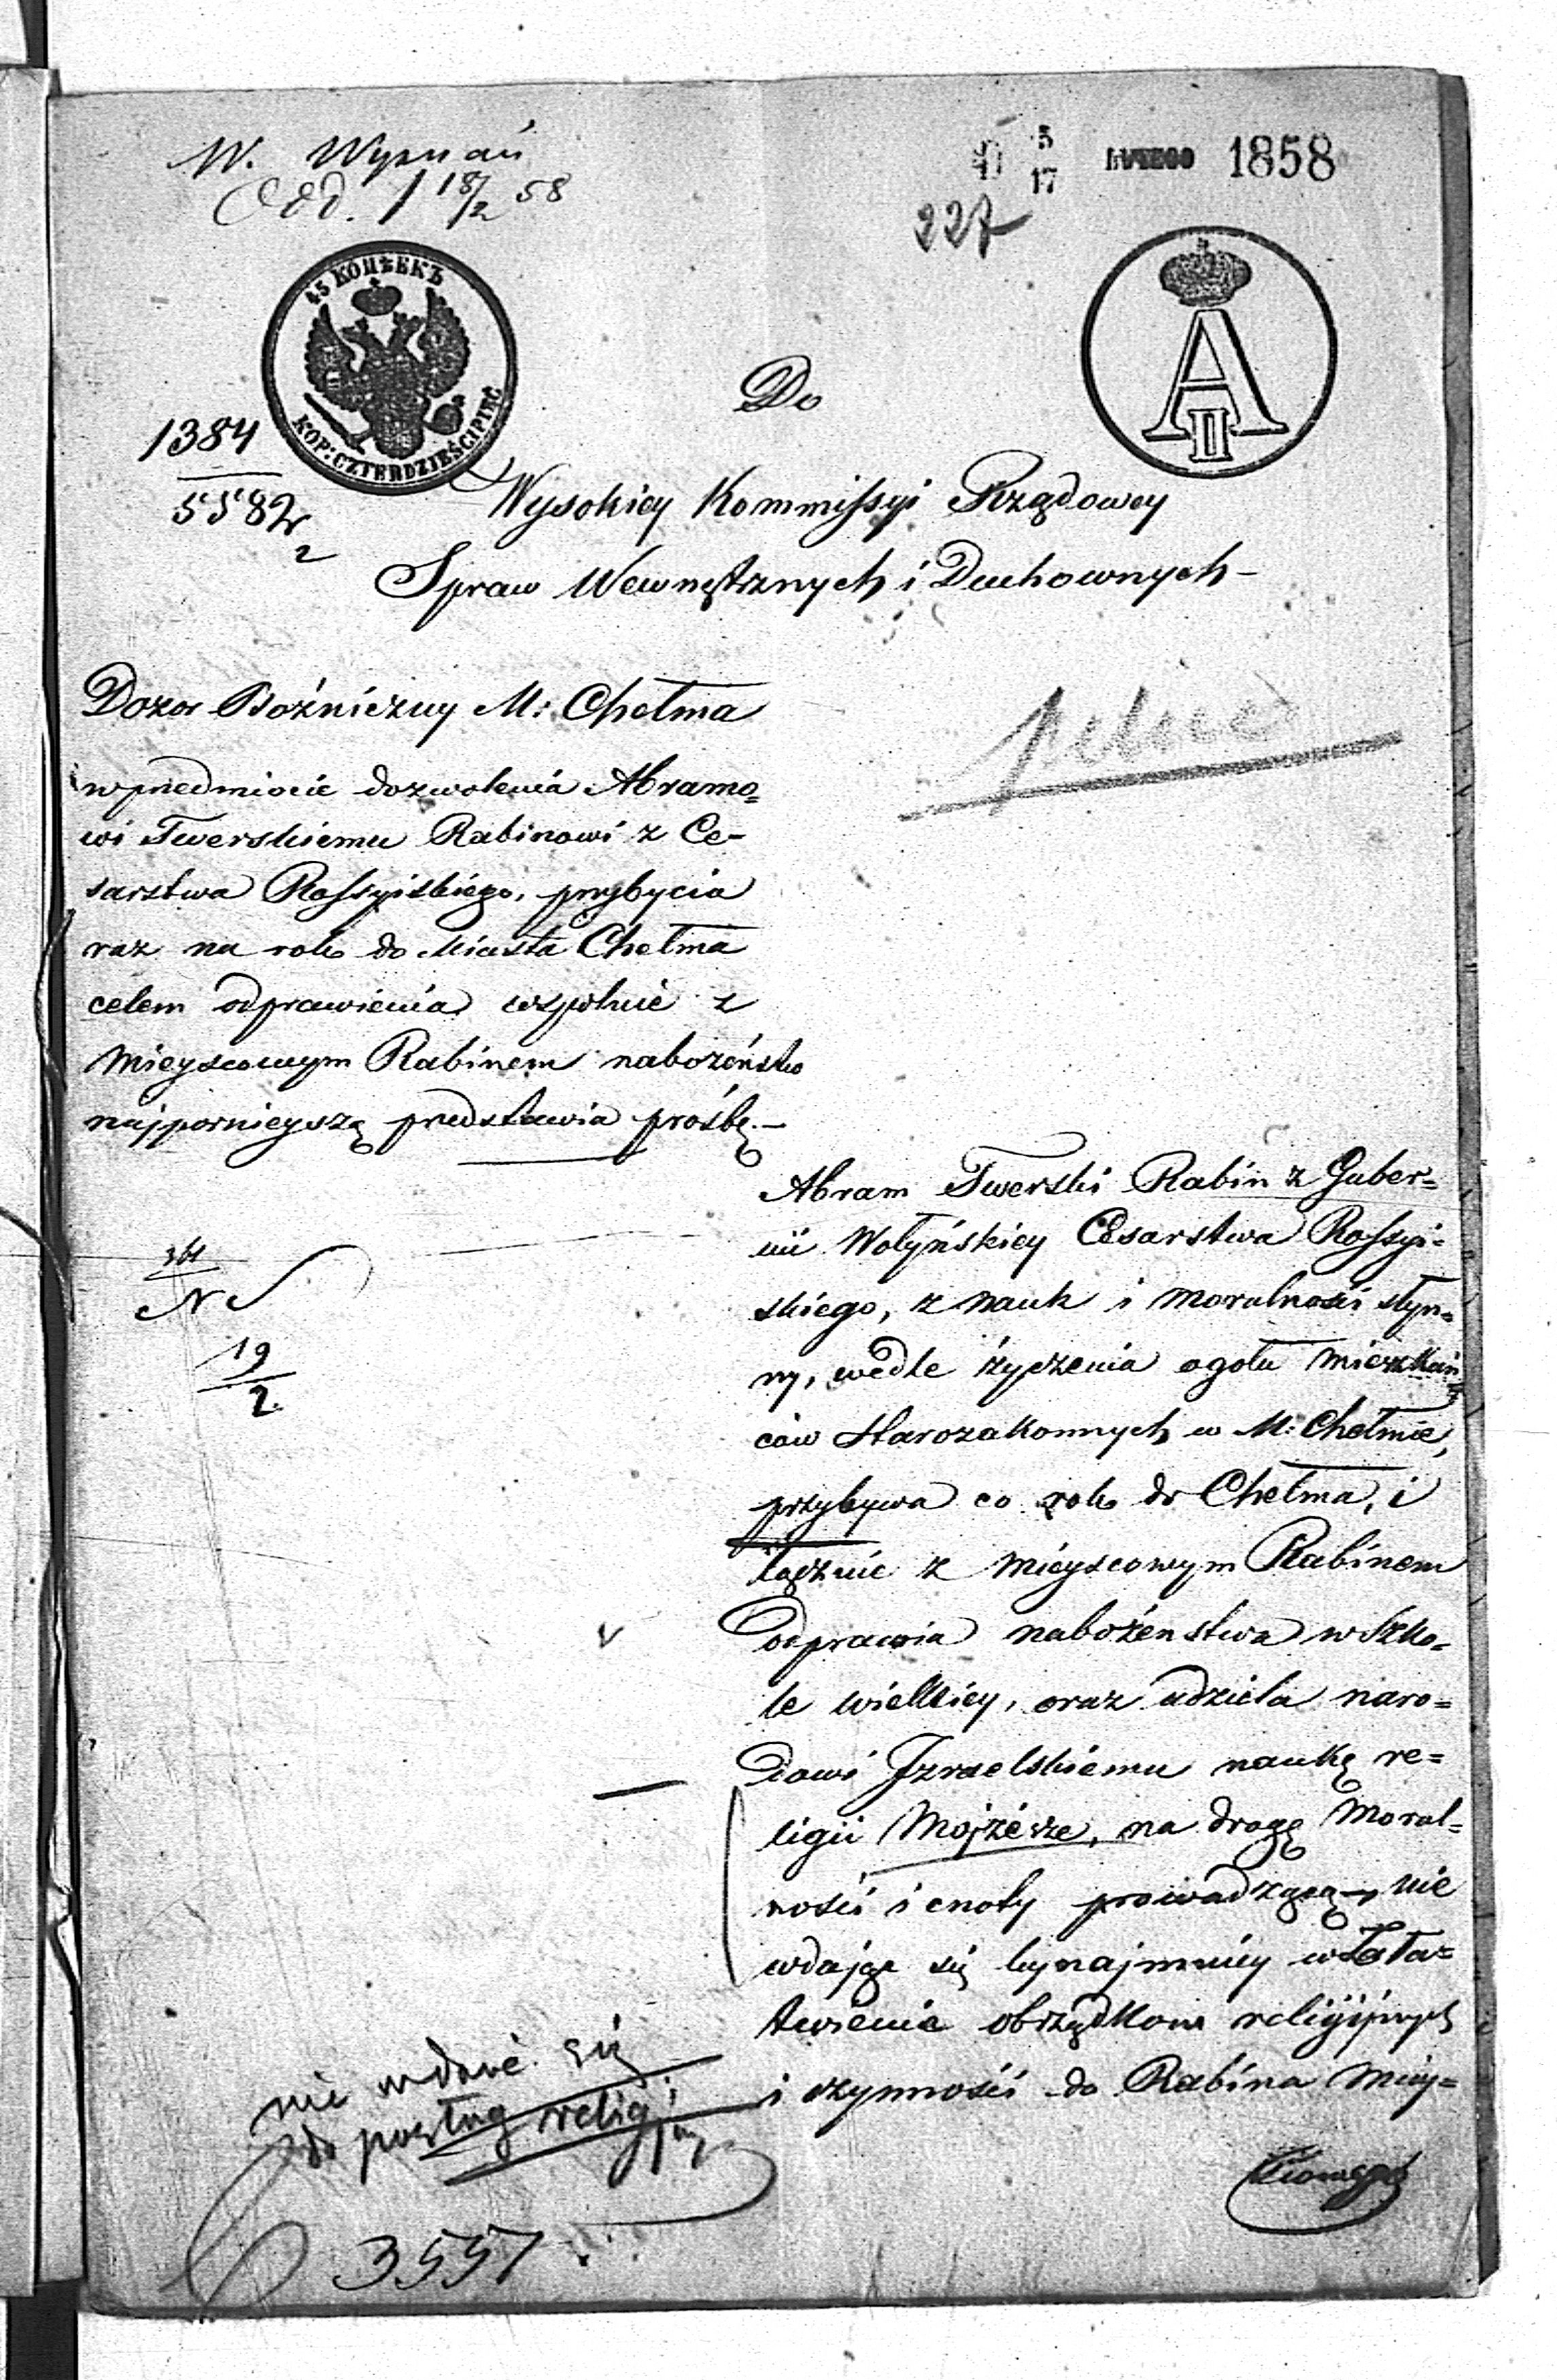 W. Wyznań
Odd. 1 18/2 58
5
17 LUTEGO 1858
227
45 КОПѢЕКЪ
KOP: CZTERDZIEŚCI PIĘĆ
A II
1384
5582
2
Do
Wysokiey Kommissyi Rządowey
Spraw Wewnętrznych i Duchownych –
Dozor Bożniczny M: Chełma
w przedmiocie dozwolenia Abramo=
wi Twerskiemu Rabinowi z Ce-
sarstwa Rossyiskiego, przybycia
raz na rok do Miasta Chełma
celem odprawienia wspolnie z
Mieyscowym Rabinem nabożeństw
najporniejszą przedstawia prośbę. –
pilne
Abram Twerski Rabin z Guber=
nii Wołyńskiey Cesarstwa Rossyi=
skiego, z nauk i moralności słyn=
ny, wedle życzenia ogołu mieszkań
ców Starozakonnych w M: Chełmie,
przybywa co rok do Chełma, i
łącznie z mieyscowym Rabinem
odprawia nabożeństwa w Szko=
le wielkiey, oraz udziela naro=
dowi Izraelskiemu naukę re=
ligii Mojżesze, na drogę moral=
ności i cnoty prowadzącą, nie
wdając się bynajmniey w Zała=
twienie obrządkow religijnych
i czynności do Rabina miey=
N
19
2
nie wdawać się
do posług religijnych
3557